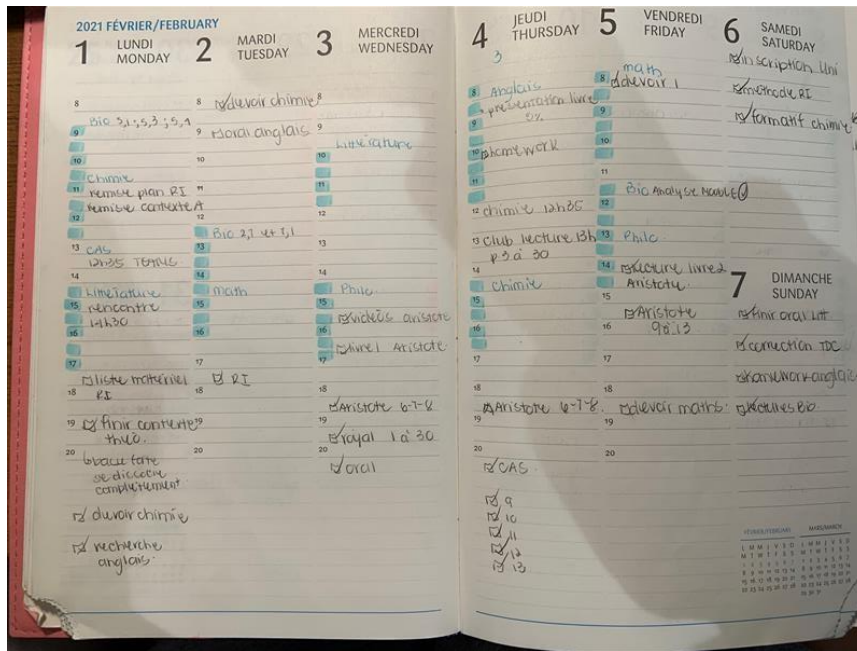 2021 FÉVRIER/FEBRUARY
1 LUNDI
MONDAY
8
Bio 3,1; 5,3; 5,4
9
10
Chimie
11 remise plan RI
remise contexte A
12
13 CAS
12h35 TEAMS
14
Littérature
15 rencontre
14h30
16
17
liste matériel
18 RI
19 finir contexte
théo.
20 bactérie
se dissocie
complètement
devoir chimie
recherche
anglais.
2 MARDI
TUESDAY
8 devoir chimie
9 oral anglais
10
11
12
Bio 2,7 et 5,1
13
14
Math
15
16
17
18 RI
19
20
3 MERCREDI
WEDNESDAY
8
9
Littérature
10
11
12
13
14
Philo.
15
vidéos aristote
16
livre 1 Aristote
17
18
Aristote 6-7-8
19
royal 1 à 30
20
oral
4 JEUDI
THURSDAY
3
8 Anglais
présentation livre
9
10 homework
11
12 chimie 12h35
13 Club lecture 13h
p.3 à 30
14
Chimie
15
16
17
18
Aristote 6-7-8.
19
20
CAS.
9
10
11
12
13
5 VENDREDI
FRIDAY
math
8 devoir 1
9
10
11
Bio Analyse MODULE
12
13 Philo
14 lecture livre 2
Aristote
15
Aristote
16 9 à 13
17
18
devoir maths.
19
20
6 SAMEDI
SATURDAY
inscription Uni
méthode RI
formatif chimie
7 DIMANCHE
SUNDAY
finir oral Litt
correction TDC
homework anglais
lectures Bio.
FÉVRIER/FEBRUARY MARS/MARCH